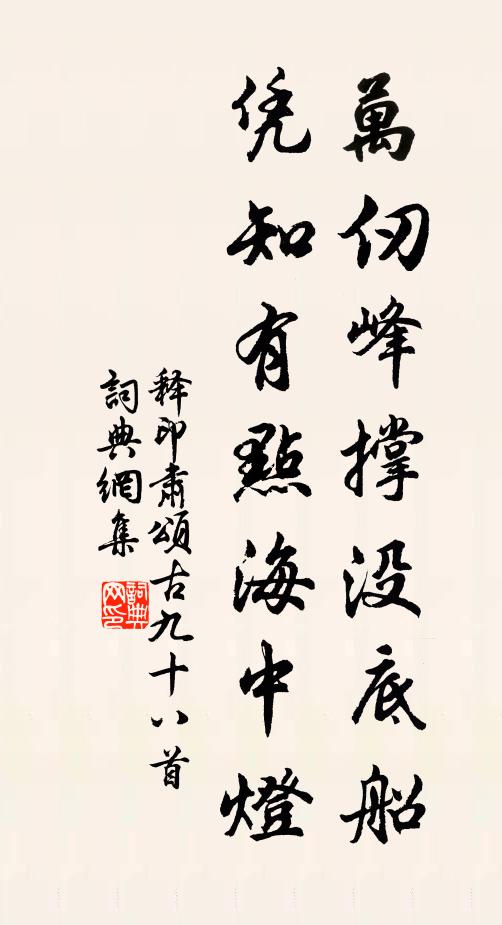 萬仞峰撐没底船
凭知有點海中燈
释印肅頌古九十八首
詞典網集
詞典网印